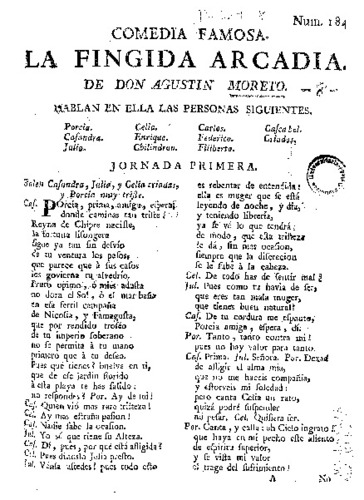 Num. 184
COMEDIA FAMOSA.
LA FINGIDA ARCADIA.
DE DON AGUSTIN MORETO.
HABLAN EN ELLA LAS PERSONAS SIGUIENTES.
Porcia. Celia. Carlos. Cascabel.
Casandra. Enrique. Federico. Criados.
Julia. Chilindron. Filiberto.
JORNADA PRIMERA.
Salen Casandra, Julia, y Celia criadas,
y Porcia muy triste.
Cas. Porcia, prima, amiga, espera,
donde caminas tan triste?
Reyna de Chipre naciste,
la fortuna lisongera
sigue ya tan sin desvio
de tu ventura los pasos,
que parece que à sus casos
les govierna tu alvedrio.
Fruto opimo, ò mies adusta
no dora el Sol, ò el mar baña
en esa fertil campaña
de Nicosia, y Famagusta,
que por rendido troféo
de tu imperio soberano
no se permita à tu mano
primero que à tu deseo.
Pues què tienes? buelve en ti,
que de ese jardin florido
à esta playa te has salido:
no respondes? Por. Ay de mi!
Cel. Quien viò mas rara tristeza!
Cas. Ay mas estraña pasion!
Cel. Nadie sabe la ocasion.
Jul. Yo sì que tiene su Alteza.
Cas. Dì, pues, por què està afligida?
Cel. Pues dirálo Julia presto.
Jul. Veula ustedes? pues todo esto
es rebentar de entendida:
ella es muger que se està
leyendo de noche, y dia,
y teniendo librería,
ya se vé lo que tendrà;
de modo, que esta tristeza
le dà, sin mas ocasion,
siempre que la discrecion
se le sube à la cabeza.
Cel. De todo has de sentir mal?
Jul. Pues como tu havia de ser;
que eres tan mala muger,
que tienes buen natural?
Cas. De tu cordura me espanto,
Porcia amiga, espera, dì.
Por. Tanto, tanto contra mi!
pues no hay valor para tanto.
Cas. Prima. Jul. Señora. Por. Dexad
de afligir el alma mia,
que no me haceis compañia,
y estorveis mi soledad:
pero canta Celia un rato,
quizà podrè suspender
mi pesar. Cel. Quisiera ser.
Por. Canta, y calla: ah Cielo ingrato!
que haya en mi pecho este aliento
de espiritu superior,
y se vista mi valor
el trage del sufrimiento!
A No